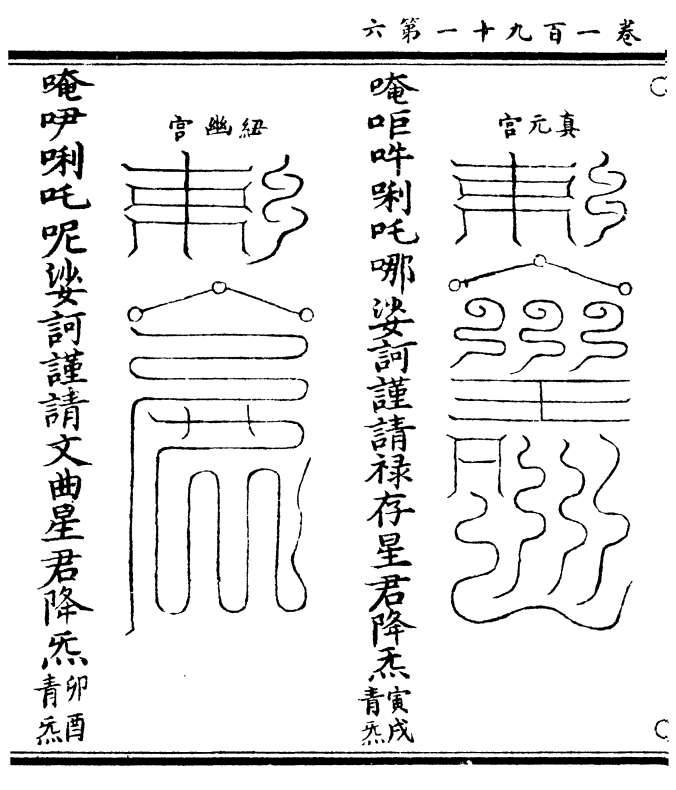 卷一百九十一第六
真元宫
唵𠰃吽唎吒哪娑訶謹請禄存星君降炁寅戌青炁
紐幽宫
唵吚唎吒呢娑訶謹請文曲星君降炁卯酉青炁